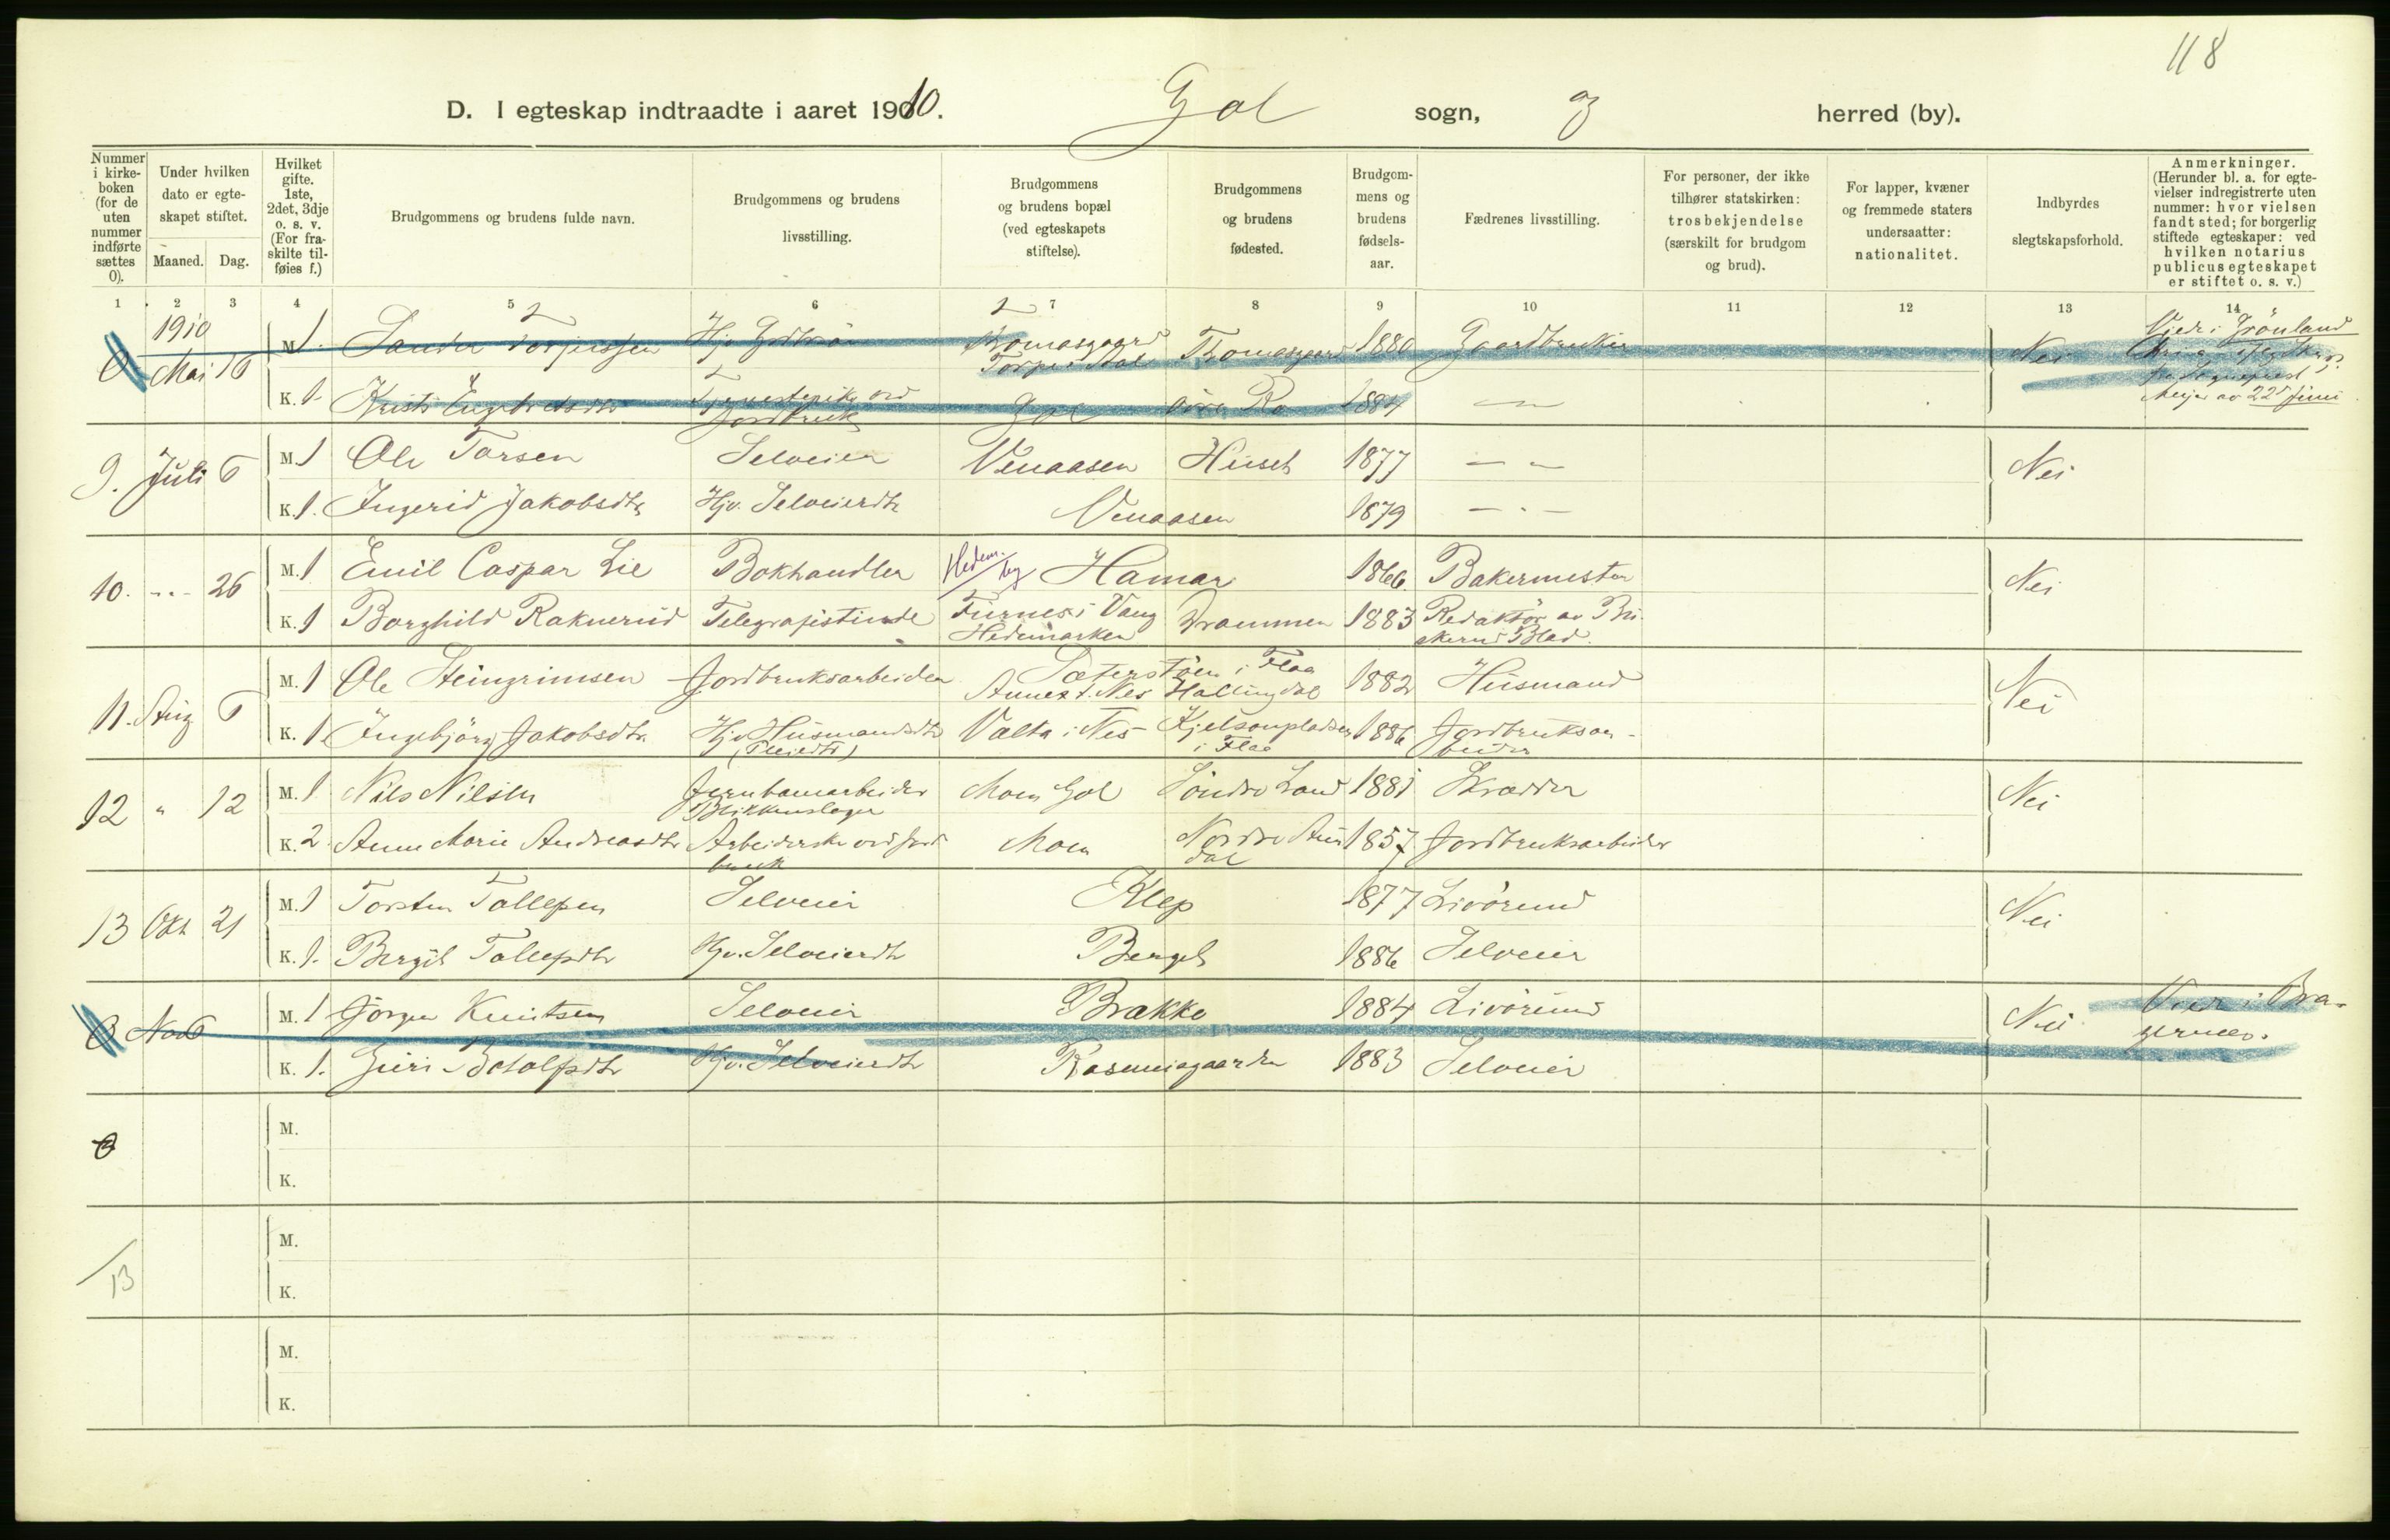 118
D. I egteskap indtraadte i aaret 1910. Gol sogn, G herred (by).
Nummer i kirkeboken (for de uten nummer indførte sættes 0).
Under hvilken dato er egteskapet stiftet.
Maaned. Dag.
Hvilket gifte. 1ste, 2det, 3dje o. s. v. (For fraskilte tilføies f.)
Brudgommens og brudens fulde navn.
Brudgommens og brudens livsstilling.
Brudgommens og brudens bopæl (ved egteskapets stiftelse).
Brudgommens og brudens fødested.
Brudgommens og brudens fødselsaar.
Fædrenes livsstilling.
For personer, der ikke tilhører statskirken: trosbekjendelse (særskilt for brudgom og brud).
For lapper, kvæner og fremmede staters undersaatter: nationalitet.
Indbyrdes slegtskapsforhold.
Anmerkninger. (Herunder bl. a. for egtevielser indregistrerte uten nummer: hvor vielsen fandt sted; for borgerlig stiftede egteskaper: ved hvilken notarius publicus egteskapet er stiftet o. s. v.)
1 2 3 4 5 6 7 8 9 10 11 12 13 14
1910
0 Mai 16 M. 1. Sander Torjussen Thomasgaard Torpe Gol Thomasgaard 1880 Gaardbruker Nei Viet i Grönland
K. 1. Kristi Engebretsdtr Tjenestepike ved Jordbruk Gol 1884 — 22 Juni
9. Juli 6 M. 1 Ole Torsen Selveier Venaasen Huset 1877 — — Nei
K. 1. Ingerid Jakobsdtr Hjv. Selveierdtr Venaasen 1879 — - —
10. - - - 26 M. 1 Emil Caspar Lie Bokhandler Hedem. by Hamar 1866 Bakermester Nei
K. 1 Borghild Raknerud Telegrafistinde Furnes i Vang Hedemarken Drammen 1883 Redaktør av Buskerud Blad.
11. Aug 6 M. 1 Ole Steingrimsen Jordbruksarbeider Sæterstöen i Flaa Hallingdal 1882 Husmand Nei
K. 1. Ingebjörg Jakobsdtr. Hjv. Husmandsdtr Valta i Nes Kjelsonpladsen i Flaa 1886 Jordbruksarbeider
12 " 12 M. 1 Nils Nilsen Jernbanearbeider Blikkenslager Moen Gol Söndre Land 1881 Skrædder Nei
K. 2 Anne Marie Andreasdtr Arbeiderske ved Jordbruk Moen Nordre Aurdal 1857 Jordbruksarbeider
13 Okt 21 M. 1 Torsten Tollefsen Selveier Klep 1877 Livörmand Nei
K. 1. Bergit Tollefsdtr Hjv. Selveierdtr Berget 1886 Selveier
0 Nov 6 M. 1 Jörgen Knutsen Selveier Brække 1884 Livörmand Nei Viet i Bragernes.
K. 1. Guri Botolfsdtr Hjv. Selveierdtr Rasmusgaarden 1883 Selveier
0 M.
K.
13 M.
K.
M.
K.